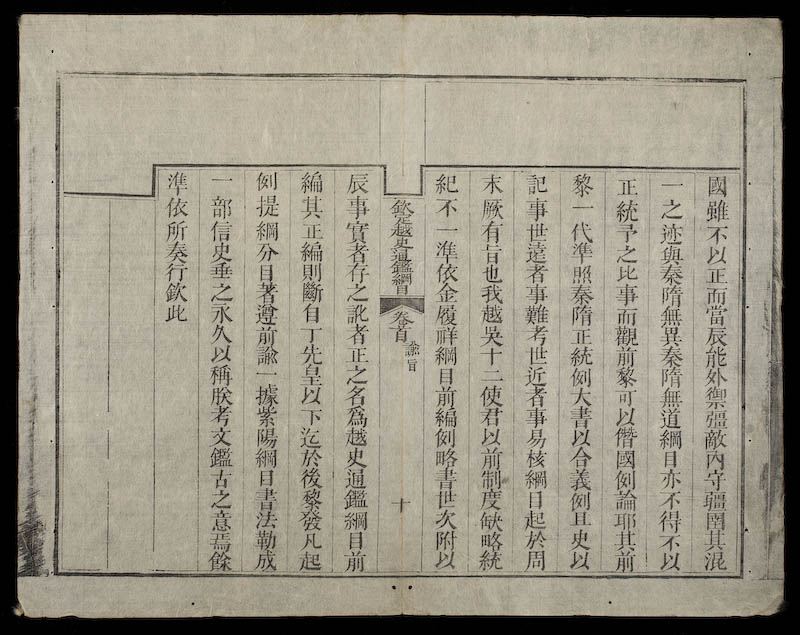 國雖不以正而當辰能外禦彊敵內守疆圉其混
一之迹與秦隋無異秦隋無道綱目亦不得不以
正統予之比事而觀前黎可以僭國例論耶其前
黎一代準照秦隋正統例大書以合義例且史以
記事世遠者事難考世近者事易核綱目起於周
末厥有旨也我越吳十二使君以前制度缺略統
紀不一準依金履祥綱目前編例略書世次附以
欽定越史通鑑綱目
卷首
諭旨
十
辰事實者存之訛者正之名爲越史通鑑綱目前
編其正編則斷自丁先皇以下迄於後黎發凡起
例提綱分目著遵前諭一據紫陽綱目書法勒成
一部信史垂之永久以稱朕考文鑑古之意焉餘
準依所奏行欽此